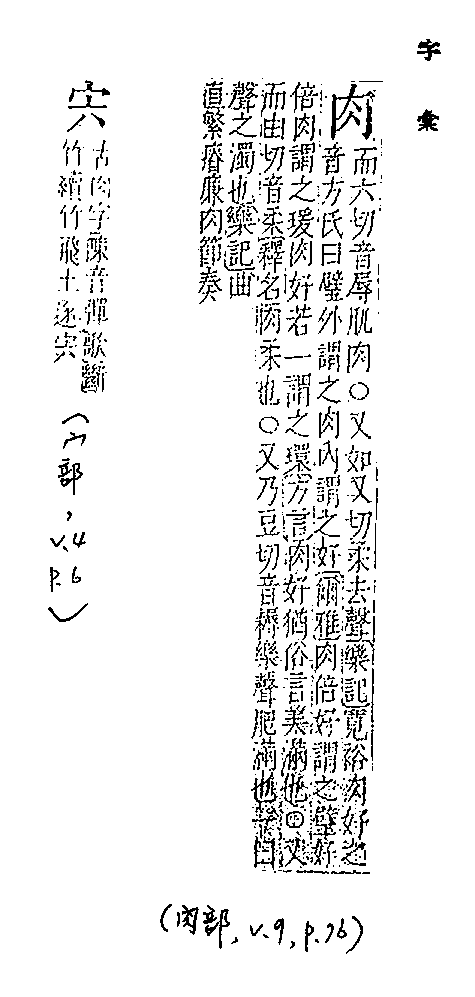 字彙
肉
而六切音辱肌肉〇又如又切柔去聲樂記寬裕肉好之
音方氏曰璧外謂之肉內謂之好爾雅肉倍好謂之璧好
倍肉謂之瑗肉好若一謂之環方言肉好猶俗言美滿也 又
而由切音柔釋名肉柔也〇又乃豆切音耨樂聲肥滿也 曰
聲之濁也樂記曲
直繁瘠廉肉節奏
宍
古肉字陳音彈歌斷
竹續竹飛土逐宍
(宀部, v.4 p.6)
(肉部, v.9, p.76)